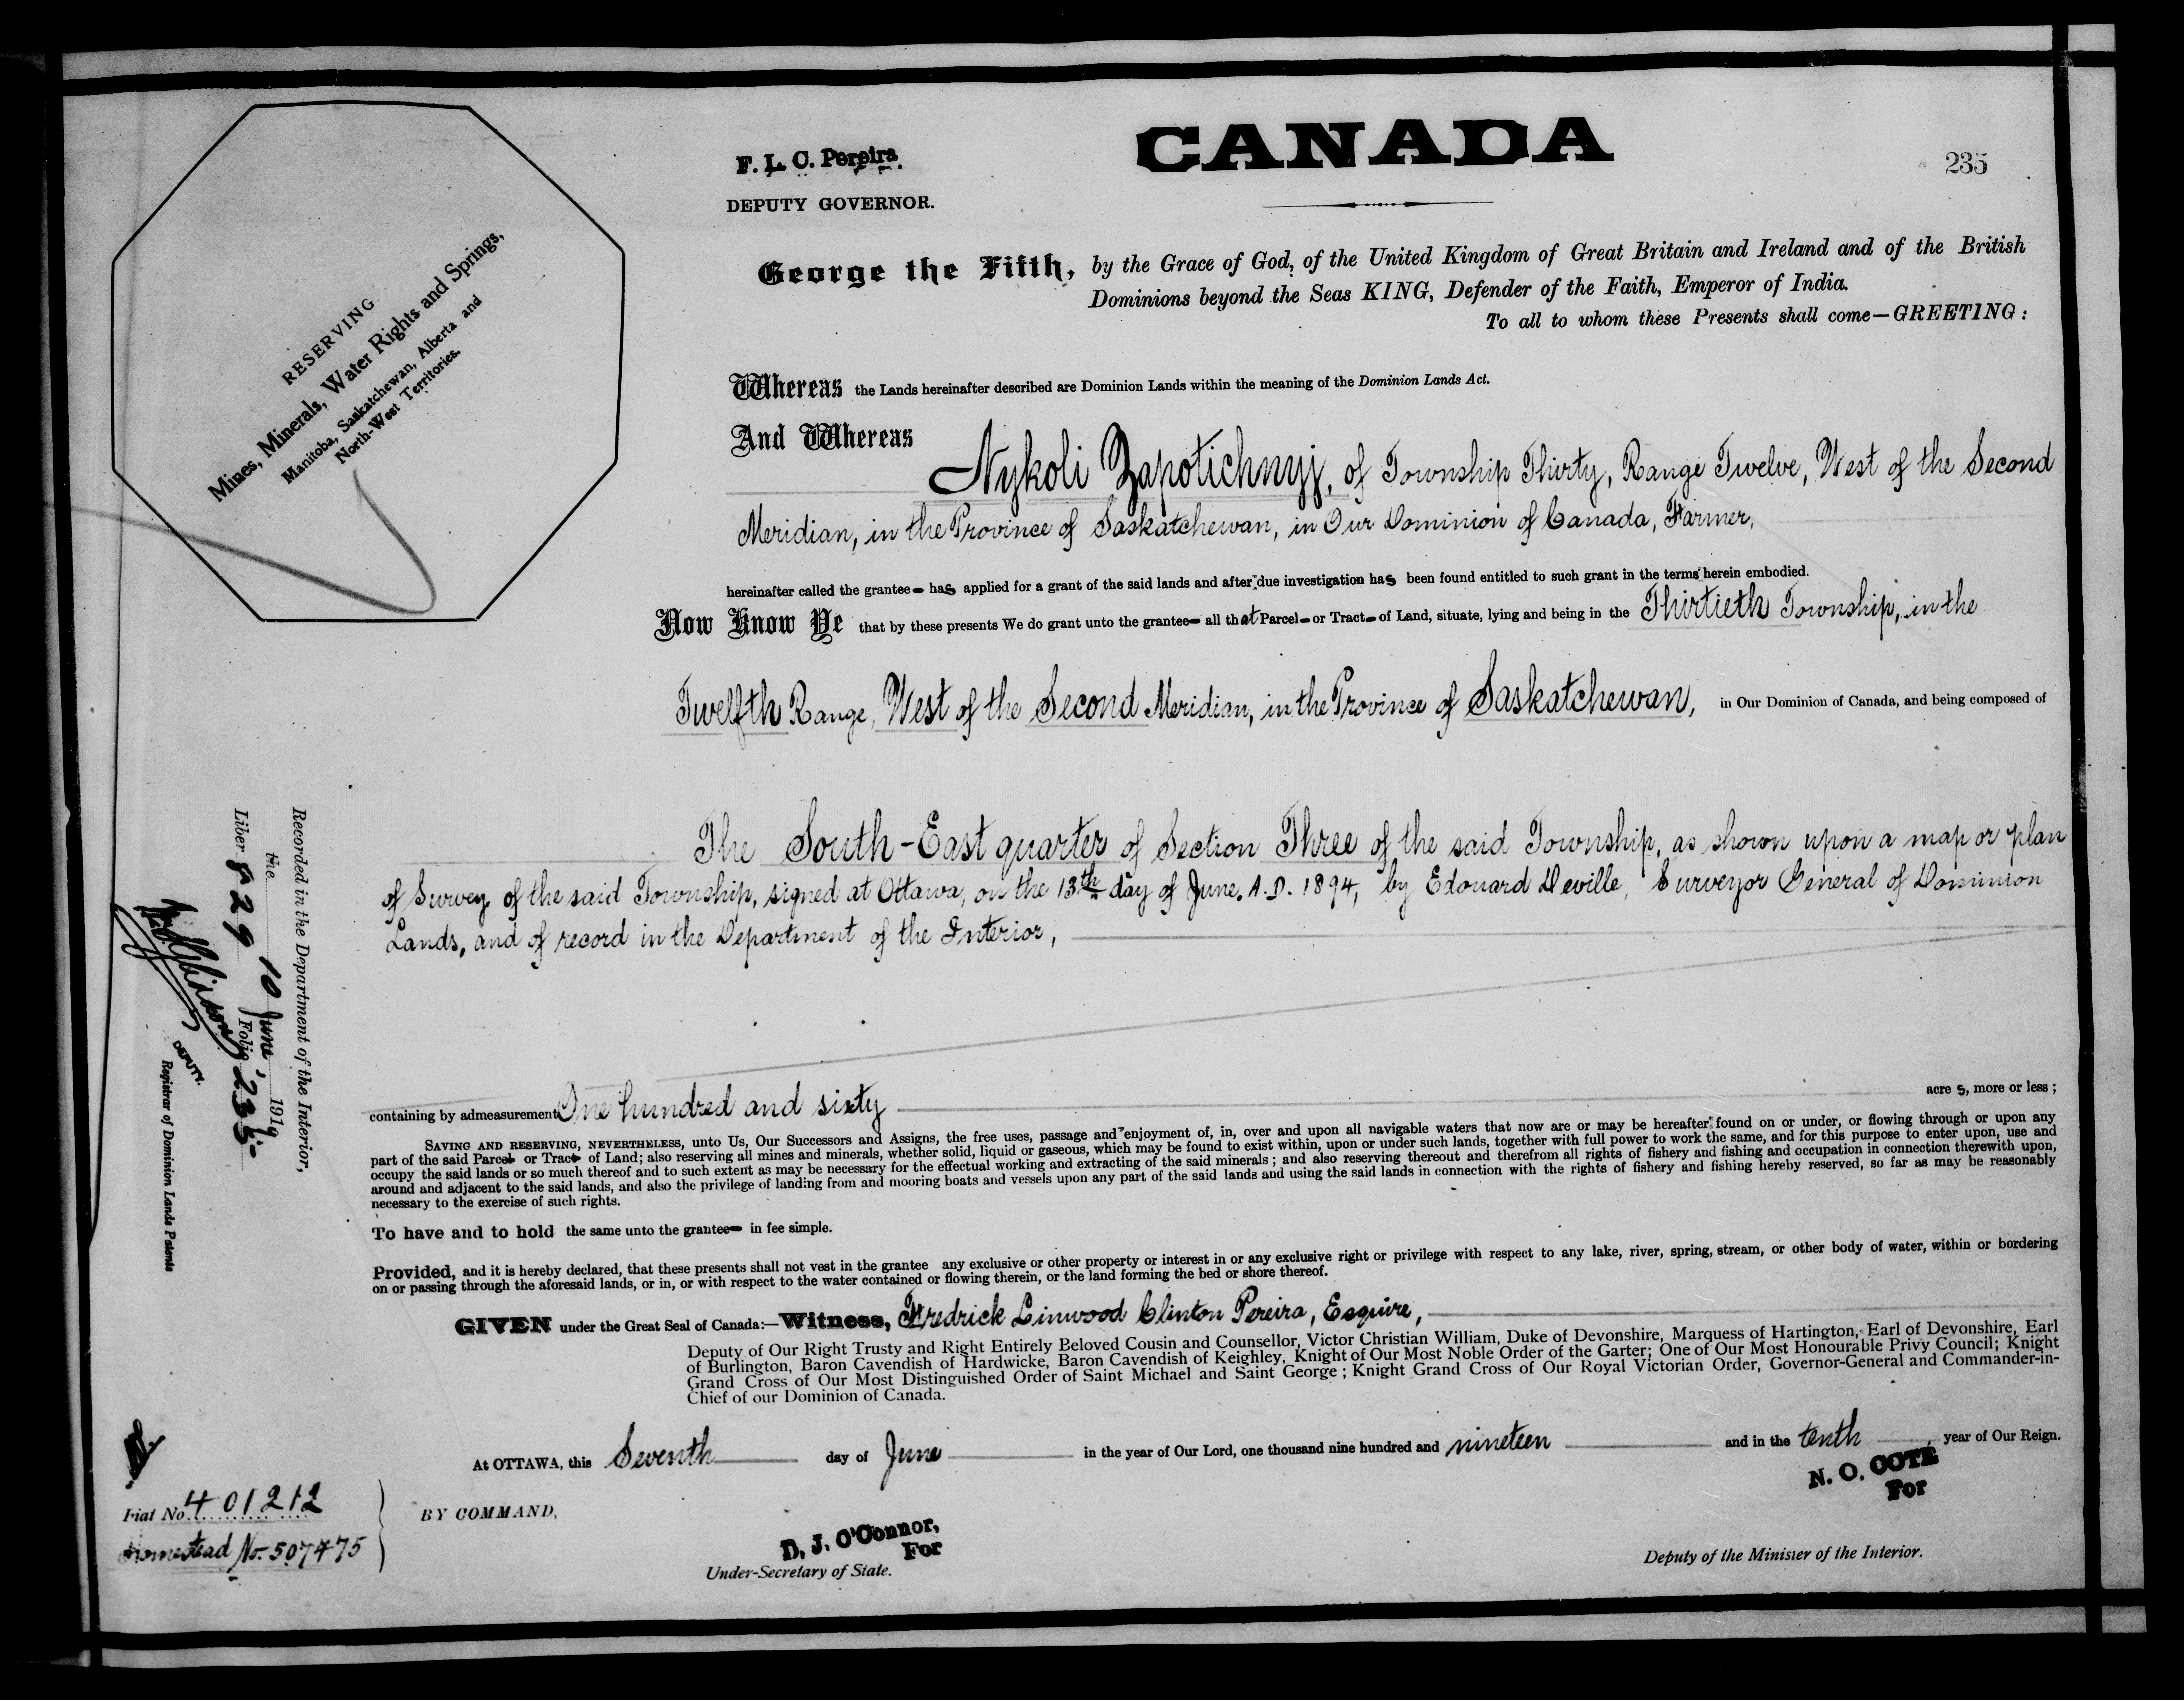 CANADA
235
F. L. C. Pereira
DEPUTY GOVERNOR.
RESERVING
Mines, Minerals, Water Rights and Springs,
Manitoba, Saskatchewan, Alberta and
North-West Territories.
George the Fifth, by the Grace of God, of the United Kingdom of Great Britain and Ireland and of the British
Dominions beyond the Seas KING, Defender of the Faith, Emperor of India.
To all to whom these Presents shall come—GREETING:
Whereas the Lands hereinafter described are Dominion Lands within the meaning of the Dominion Lands Act.
And Whereas
Nykoli Zapotichnyj, of Township Thirty, Range Twelve, West of the Second
Meridian, in the Province of Saskatchewan, in Our Dominion of Canada, Farmer,
hereinafter called the grantee has applied for a grant of the said lands and after due investigation has been found entitled to such grant in the terms herein embodied.
Now Know Ye that by these presents We do grant unto the grantee all that Parcel or Tract of Land, situate, lying and being in the Thirtieth Township, in the
Twelfth Range, West of the Second Meridian, in the Province of Saskatchewan, in Our Dominion of Canada, and being composed of
The South-East quarter of Section Three of the said Township, as shown upon a map or plan
of Survey of the said Township, signed at Ottawa, on the 13th day of June, A.D. 1894, by Edouard Deville, Surveyor General of Dominion
Lands, and of record in the Department of the Interior,
containing by admeasurement One hundred and sixty acres, more or less;
SAVING AND RESERVING, NEVERTHELESS, unto Us, Our Successors and Assigns, the free uses, passage and enjoyment of, in, over and upon all navigable waters that now are or may be hereafter found on or under, or flowing through or upon any
part of the said Parcel or Tract of Land; also reserving all mines and minerals, whether solid, liquid or gaseous, which may be found to exist within, upon or under such lands, together with full power to work the same, and for this purpose to enter upon, use and
occupy the said lands or so much thereof and to such extent as may be necessary for the effectual working and extracting of the said minerals; and also reserving thereout and therefrom all rights of fishery and fishing and occupation in connection therewith upon,
around and adjacent to the said lands, and also the privilege of landing from and mooring boats and vessels upon any part of the said lands and using the said lands in connection with the rights of fishery and fishing hereby reserved, so far as may be reasonably
necessary to the exercise of such rights.
To have and to hold the same unto the grantee in fee simple.
Provided, and it is hereby declared, that these presents shall not vest in the grantee any exclusive or other property or interest in or any exclusive right or privilege with respect to any lake, river, spring, stream, or other body of water, within or bordering
on or passing through the aforesaid lands, or in, or with respect to the water contained or flowing therein, or the land forming the bed or shore thereof.
GIVEN under the Great Seal of Canada:—Witness, Fredrick Linwood Clinton Pereira, Esquire,
Deputy of Our Right Trusty and Right Entirely Beloved Cousin and Counsellor, Victor Christian William, Duke of Devonshire, Marquess of Hartington, Earl of Devonshire, Earl
of Burlington, Baron Cavendish of Hardwicke, Baron Cavendish of Keighley, Knight of Our Most Noble Order of the Garter; One of Our Most Honourable Privy Council; Knight
Grand Cross of Our Most Distinguished Order of Saint Michael and Saint George; Knight Grand Cross of Our Royal Victorian Order, Governor-General and Commander-in-
Chief of our Dominion of Canada.
At OTTAWA, this Seventh day of June in the year of Our Lord, one thousand nine hundred and nineteen and in the tenth year of Our Reign.
BY COMMAND,
D. J. O'Connor,
For
Under-Secretary of State.
N. O. COTE
For
Deputy of the Minister of the Interior.
Fiat No. 401212
Homestead No. 507475
Recorded in the Department of the Interior,
the 10 June 1919
Liber 829 Folio 235
DEPUTY.
Registrar of Dominion Lands Patents